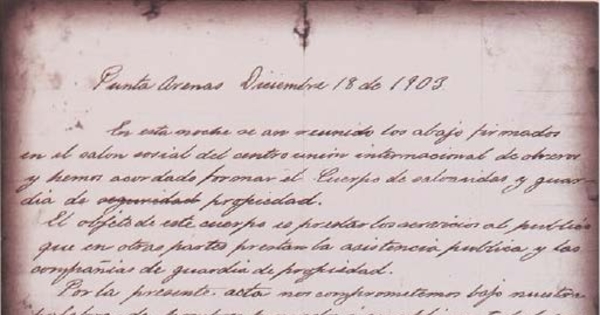 Punta Arenas Diciembre 18 de 1903
En esta noche se an reunido los abajo firmados
en el salon social del centro unión internacional de obreros
y hemos acordado formar el Cuerpo de salvavidas y guar-
dia de seguridad propiedad.
El objeto de este cuerpo es prestar los servicios al publico
que en otras partes prestan la asistencia publica y las
compañias de guardia de propiedad.
Por la presente acta nos comprometemos bajo nuestra
palabra de